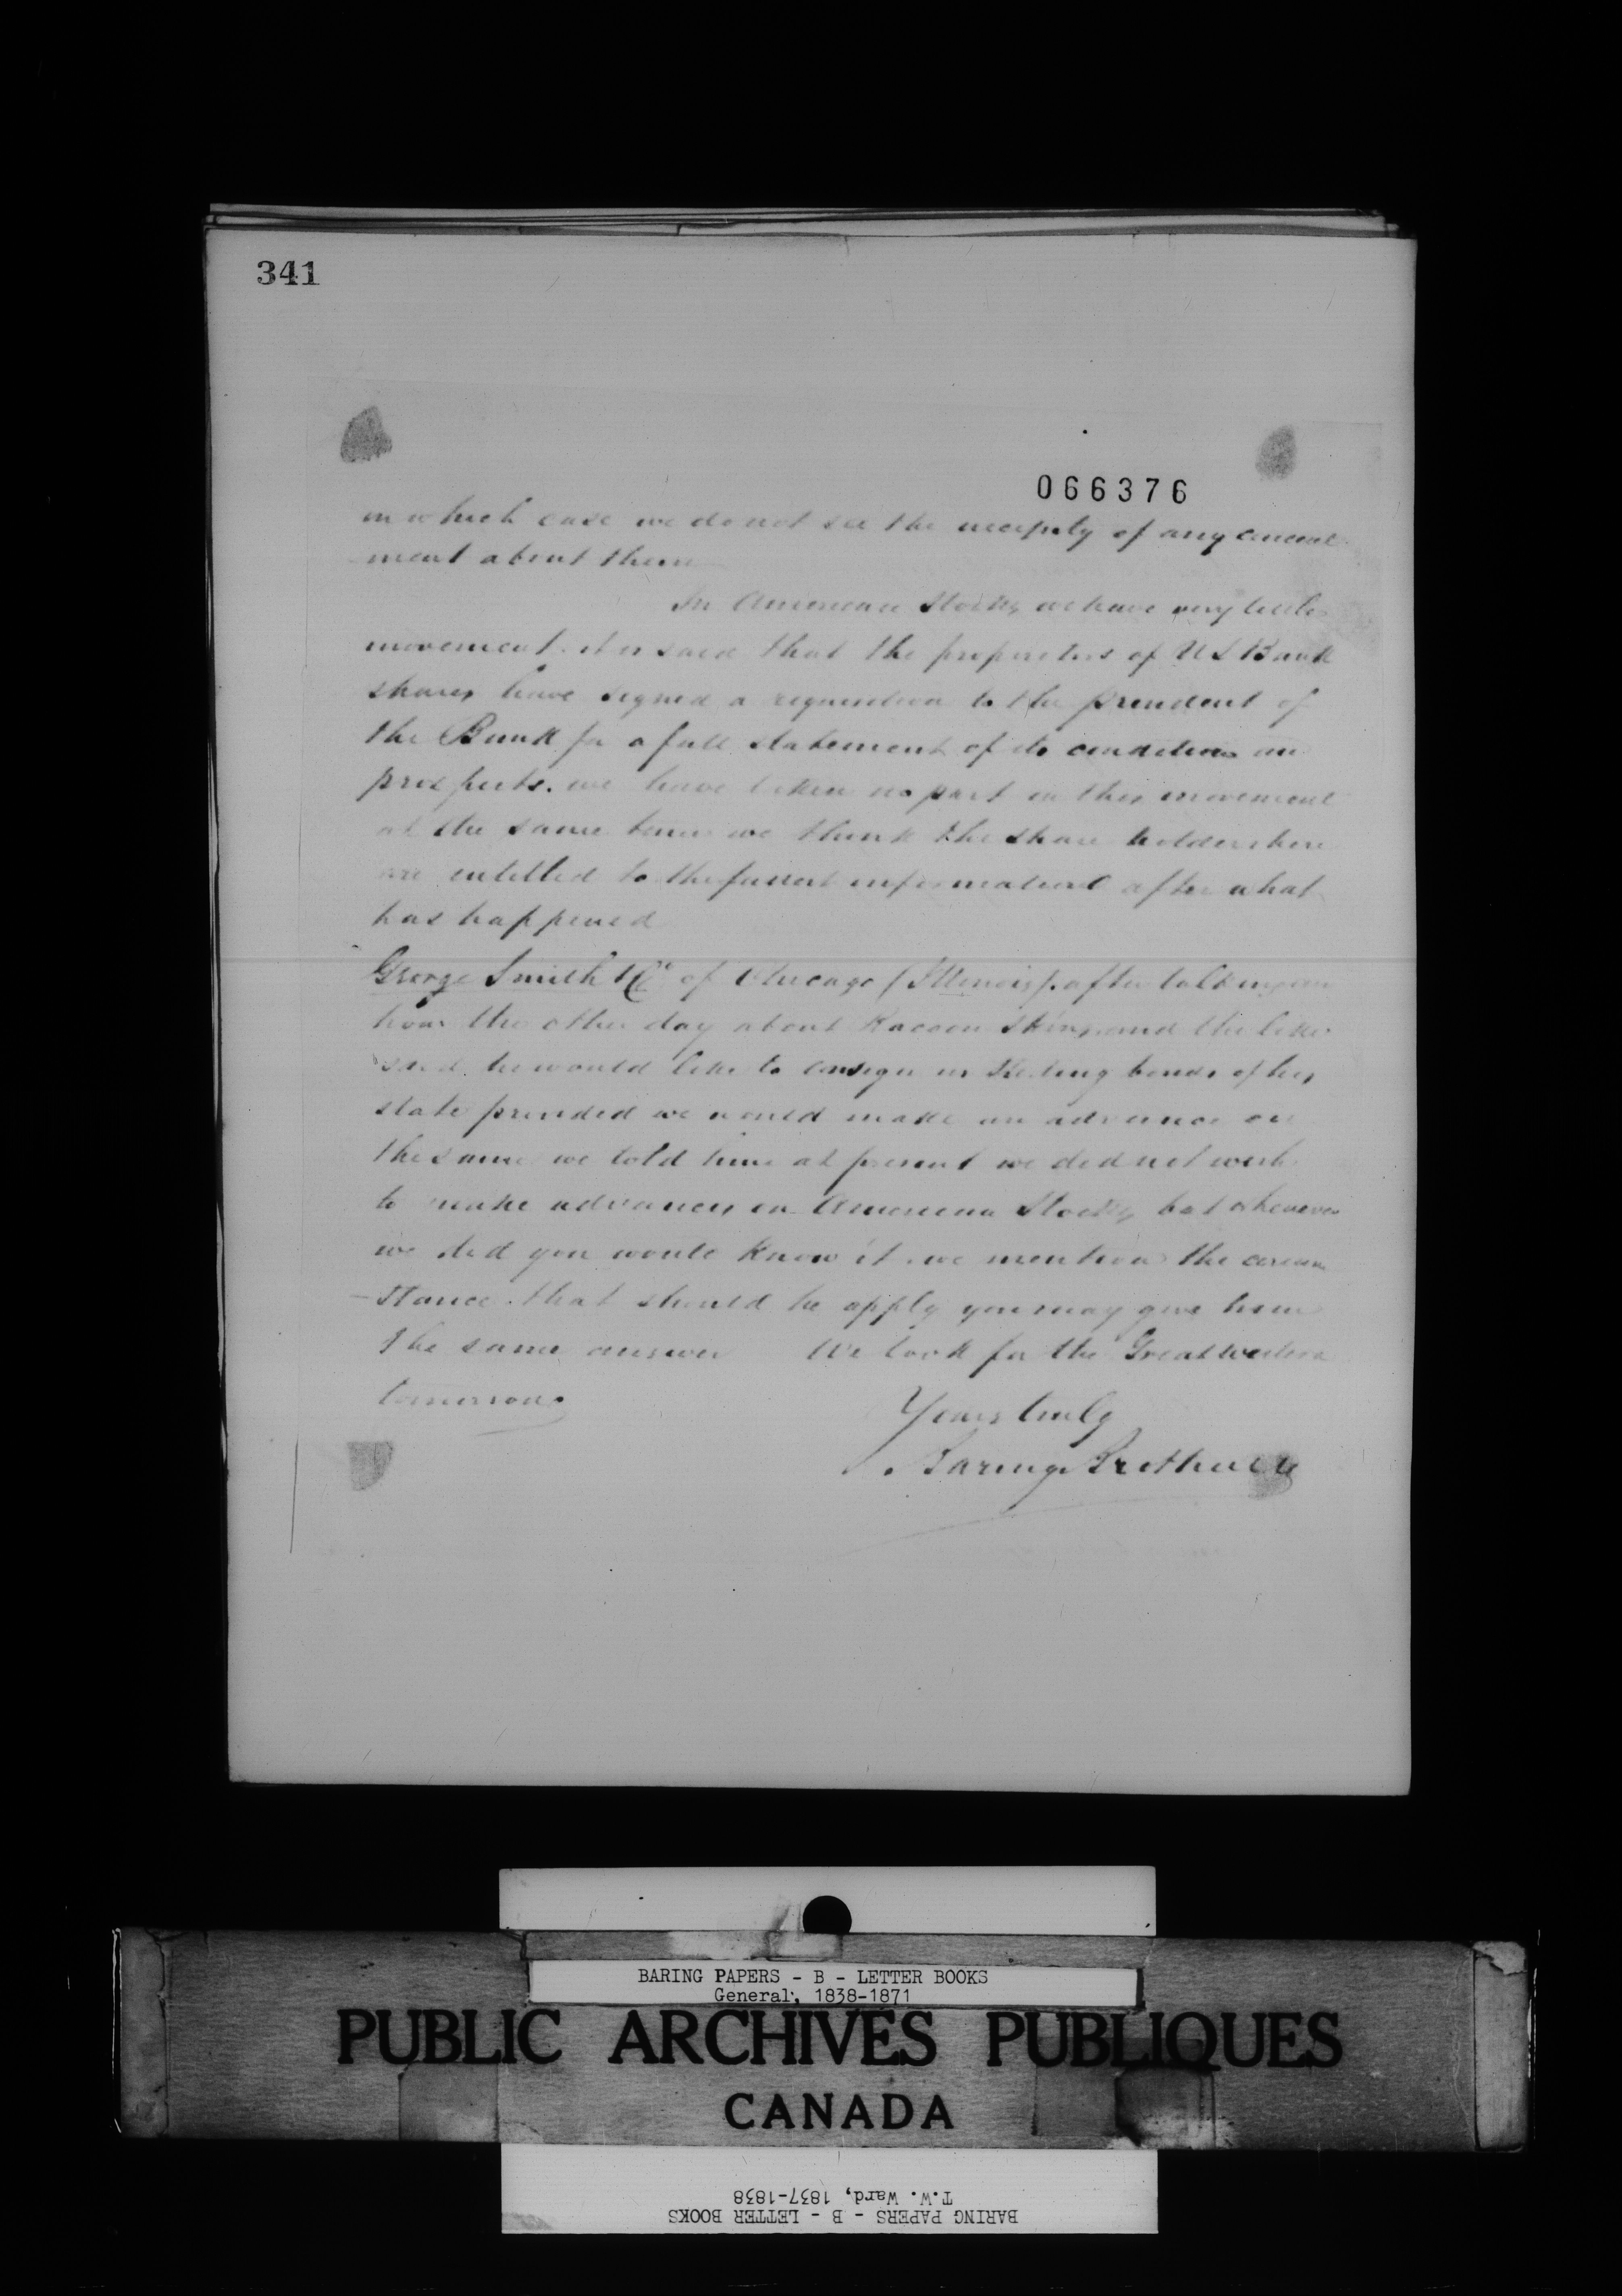 341
066376
in which case we do not see the necessity of any conceal
-ment about them
In American Stocks we have very little
movement. it is said that the proprietors of U S Bank
shares have signed a requisition to the president of
the Bank for a full statement of its condition an
prospects. we have taken no part in this movement
at the same time we think the share holders here
are entitled to the fullest information after what
has happened
George Smith & Co of Chicago (Illinois). after talking an
hour the other day about Racoon Skins and the like
said he would like to consign us Sterling bonds of his
state provided we would make an advance on
the same we told him at present we did not wish
to make advances on American Stocks, but whenever
we did you would know it. we mention the circum
-stance. that should he apply you may give him
the same answer We look for the Great Western
tomorrow.
Yours truly
Baring Brothers
BARING PAPERS - B - LETTER BOOKS
General, 1838-1871
PUBLIC ARCHIVES PUBLIQUES
CANADA
T.W. Ward, 1837-1838
BARING PAPERS - B - LETTER BOOKS